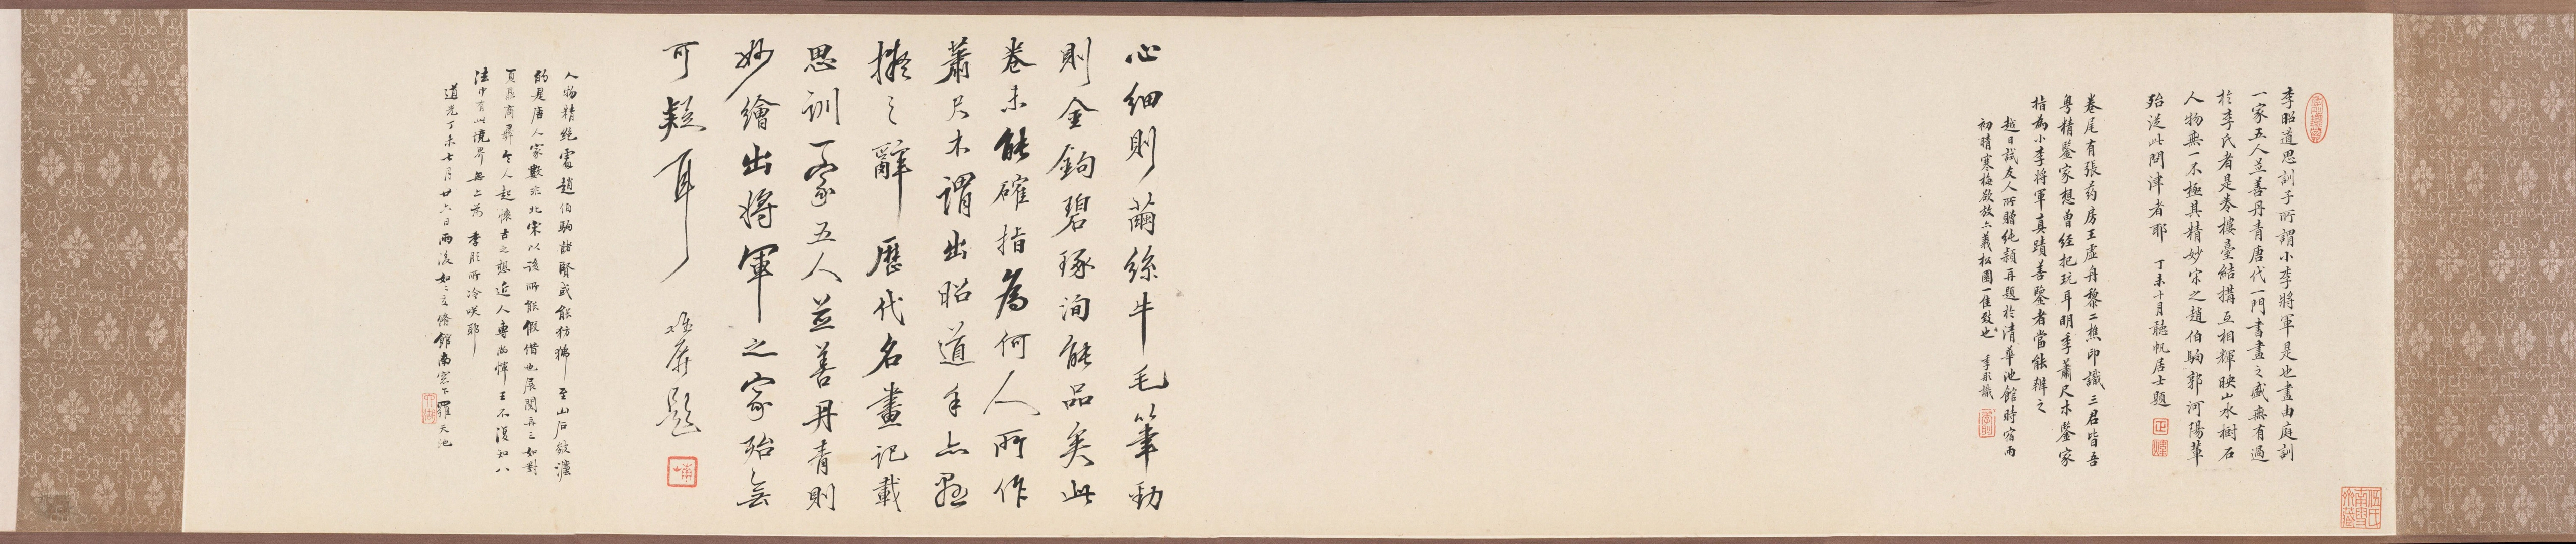 李昭道思訓子所謂小李將軍是也畫由庭訓
一家五人並善丹青唐代一門書畫之盛無有過
於李氏者是卷樓臺結構互相輝映山水樹石
人物無一不極其精妙宋之趙伯駒郭河陽輩
殆從此問津者耶 丁未十月聽帆居士題
卷尾有張葯房王虛舟黎二樵印識三君皆吾
粵精鑒家想曾經把玩耳明季蕭尺木鑒家
指為小李將軍真蹟善鑒者當能辨之
越日試友人所贈純穎再題於清華池館時宿雨
初晴寒梅欲放 季彤識
心細則繭絲牛毛筆勁
則金鉤碧琢洵能品矣此
卷未能確指為何人所作
蕭尺木謂出昭道手亦懸
擬之辭歷代名畫記載
思訓一家五人並善丹青則
妙繪出將軍之家殆無
可疑耳 題
人物精絕處趙伯駒諸賢或能仿彿 至山石皴灋
的是唐人家數非北宋以後所能假借也展閱再三如對
夏鼎商彝令人起懷古之想近人專尚惲王不復知八
法中有此境界無上矣 季彤所冷咲耶
道光丁未七月廿六日雨後 館南窓下羅天池